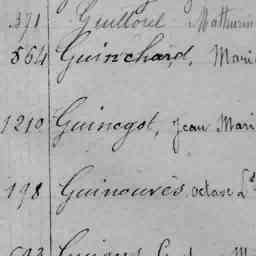 371 Guillorel Mathurin
564 Guinchard, Mari
1210 Guinegot, Jean Mari
198 Guinouvès, octave Ls